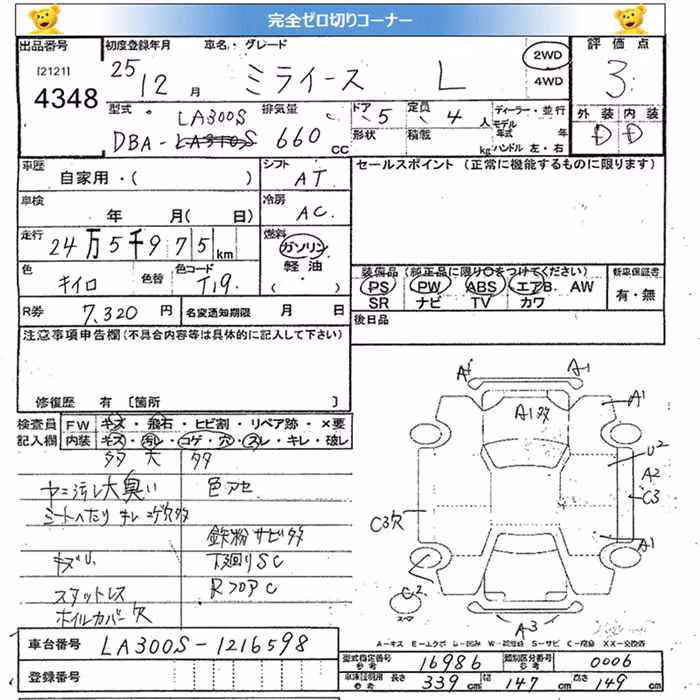 完全ゼロ切りコーナー
出品番号
[2121]
4348
初度登録年月 車名・グレード
25 12 月 ミライース L
2WD
4WD
評価点
3
外装 内装
D D
型式 LA300S
DBA-LA310S
排気量
660 cc
ドア 5
形状
定員 4 人
積載 kg
ディーラー・並行
モデル年式 年
ハンドル 左・右
車歴
自家用・( )
シフト
AT
車検
年 月( 日)
冷房
AC
走行
24万5千975km
燃料
ガソリン
軽油
( )
色
キイロ
色替
色コード
T19
R券
7,320円
名変通知期限 月 日
セールスポイント (正常に機能するものに限ります)
装備品 (純正品に限り○をつけてください)
PS PW ABS エアB AW
SR ナビ TV カワ
新車保証書
有・無
後日品
注意事項申告欄(不具合内容等は具体的に記入して下さい)
修復歴 有 〔箇所 〕
検査員記入欄
FW キズ・飛石・ヒビ割・リペア跡・×要
内装 キズ・汚レ・コゲ・穴・スレ・キレ・破レ
多 大 多
ヤニ汚レ大臭い 色アセ
シートへたり キレ コゲ穴多
鉄粉 サビ多
キズU 下回りSC
スタットレス RフロアC
ホイルカバー欠
A1 A-1
A1
A1多
U2
A2
C3
C3欠
A1
C2
スペア
A3
A-キズ E-エクボ
車台番号 LA300S-1216598
登録番号
型式指定番号 参考 16986
類別区分番号 参考 0006
車検証明用 参考 長さ 339 cm 幅 147 cm 高さ 149 cm